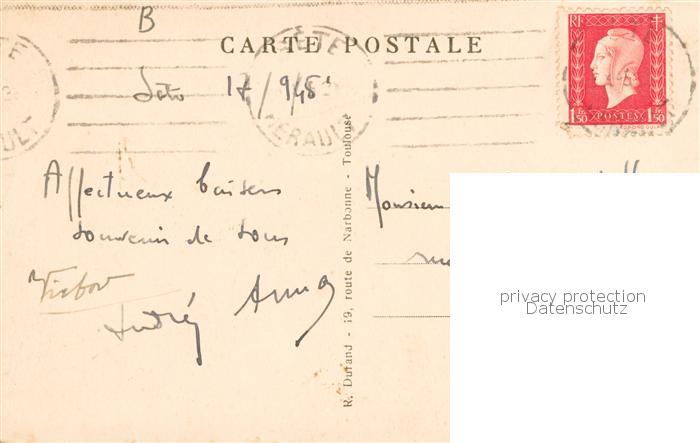 B
CARTE POSTALE
SÈTE
HÉRAULT
Sète 17 9/45
RF
1 Fr. 50 POSTES 1 Fr. 50
Affectueux baisers
souvenir de tous
Victor
André Anna
Monsieur
R. Durand - 19, route de Narbonne - Toulouse
privacy protection
Datenschutz